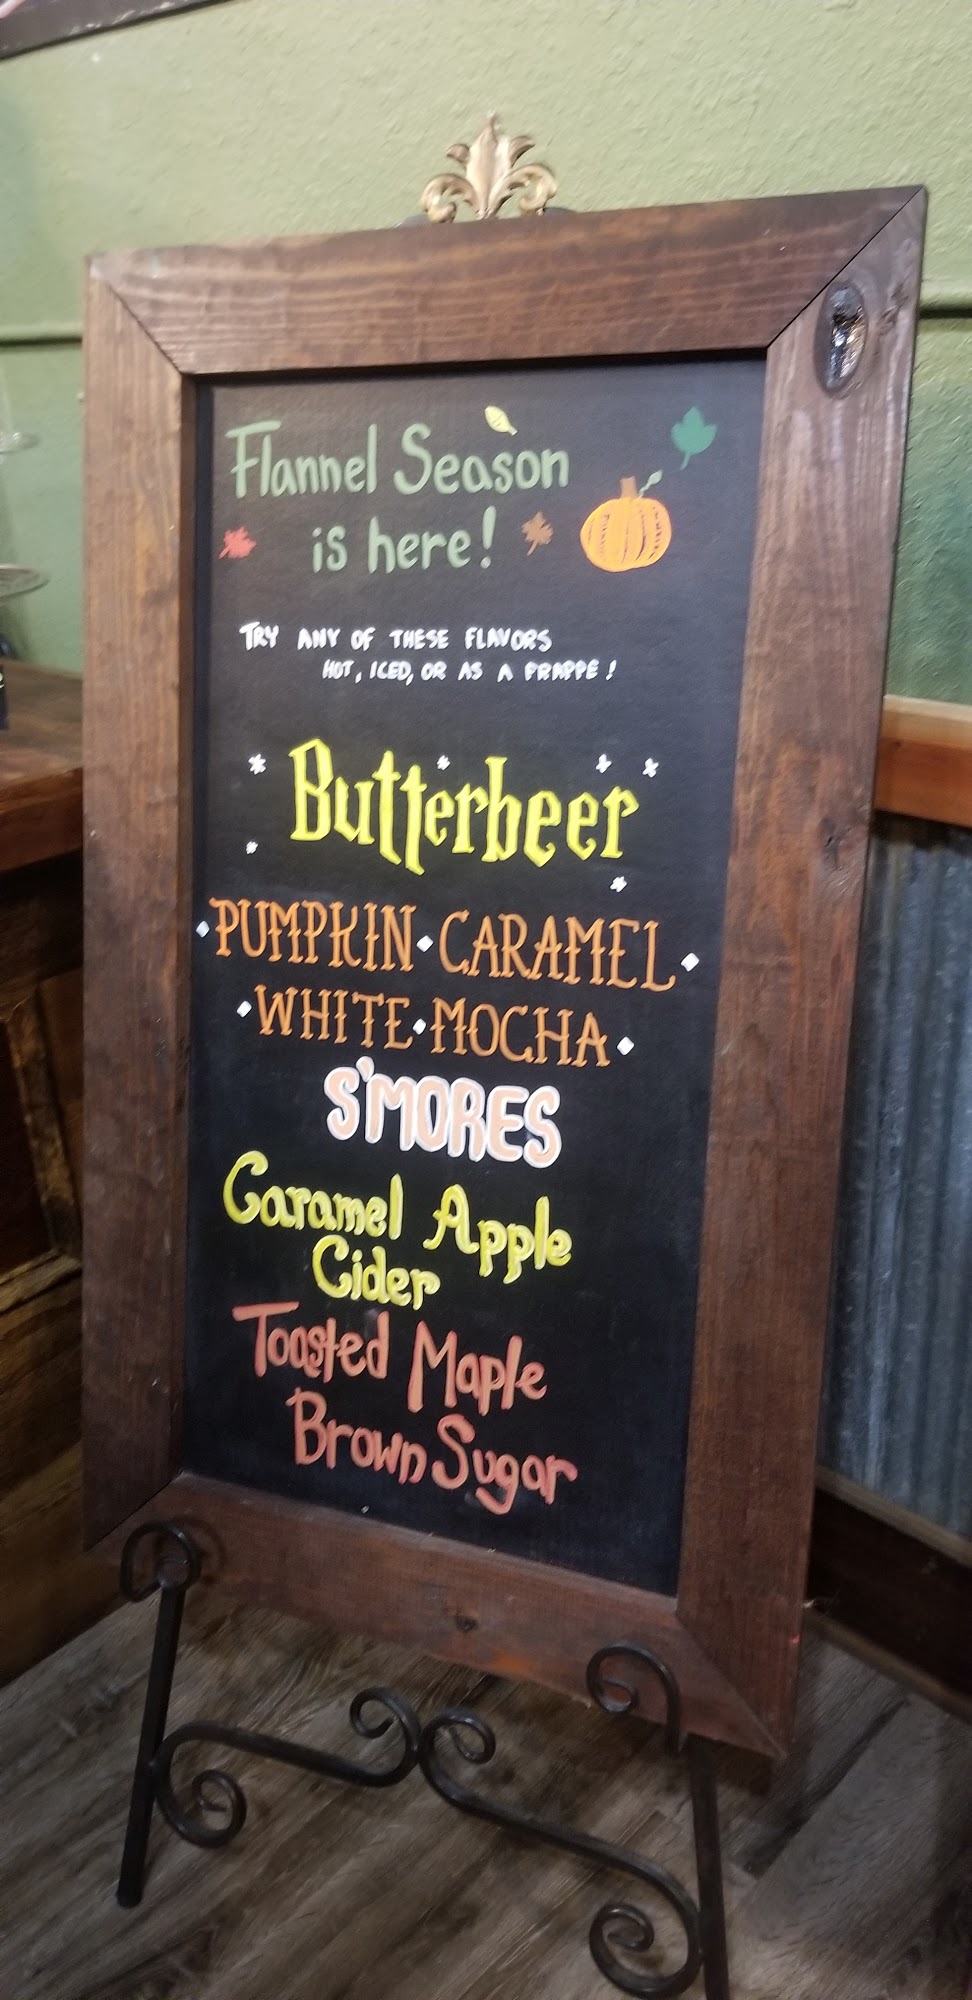 Flannel Season
is here!
TRY ANY OF THESE FLAVORS
HOT, ICED, OR AS A FRAPPE!
Butterbeer
PUMPKIN·CARAMEL
WHITE·MOCHA
S'MORES
Caramel Apple
Cider
Toasted Maple
Brown Sugar